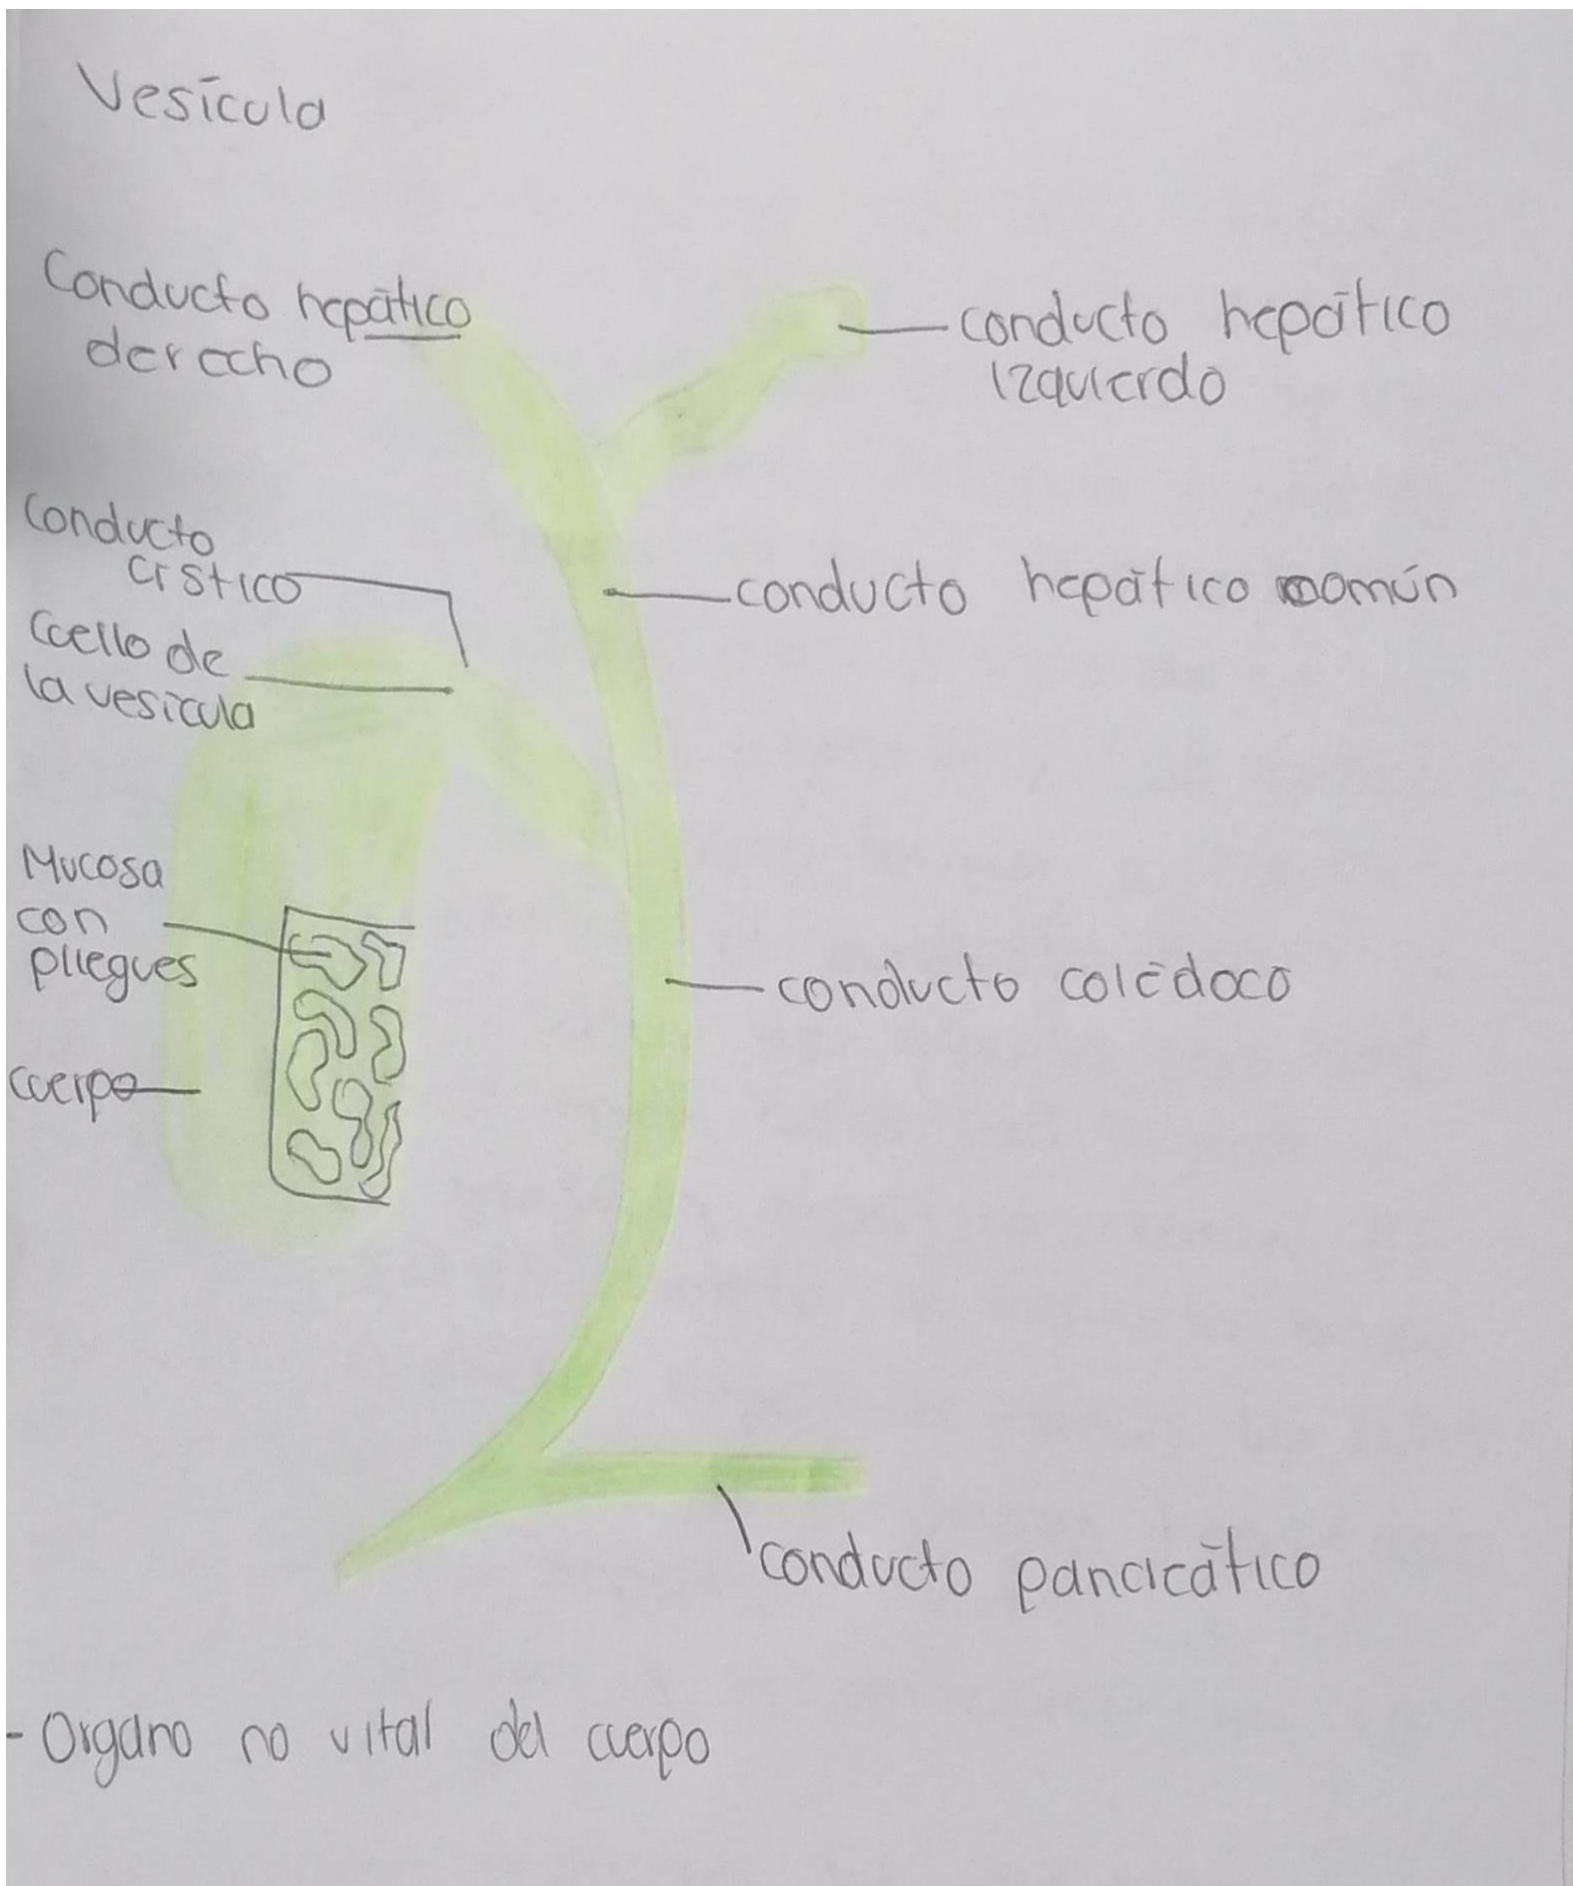 Vesícula
Conducto hepático
derecho
conducto hepático
Izquierdo
Conducto
cístico
conducto hepático común
Cuello de
la vesícula
Mucosa
con
pliegues
conducto colédoco
cuerpo
conducto pancreático
- Organo no vital del cuerpo